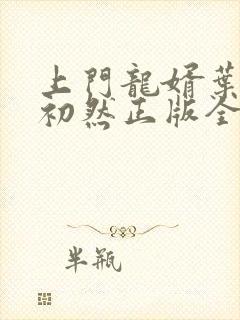 上門龍婿葉
初然正版全
半瓶